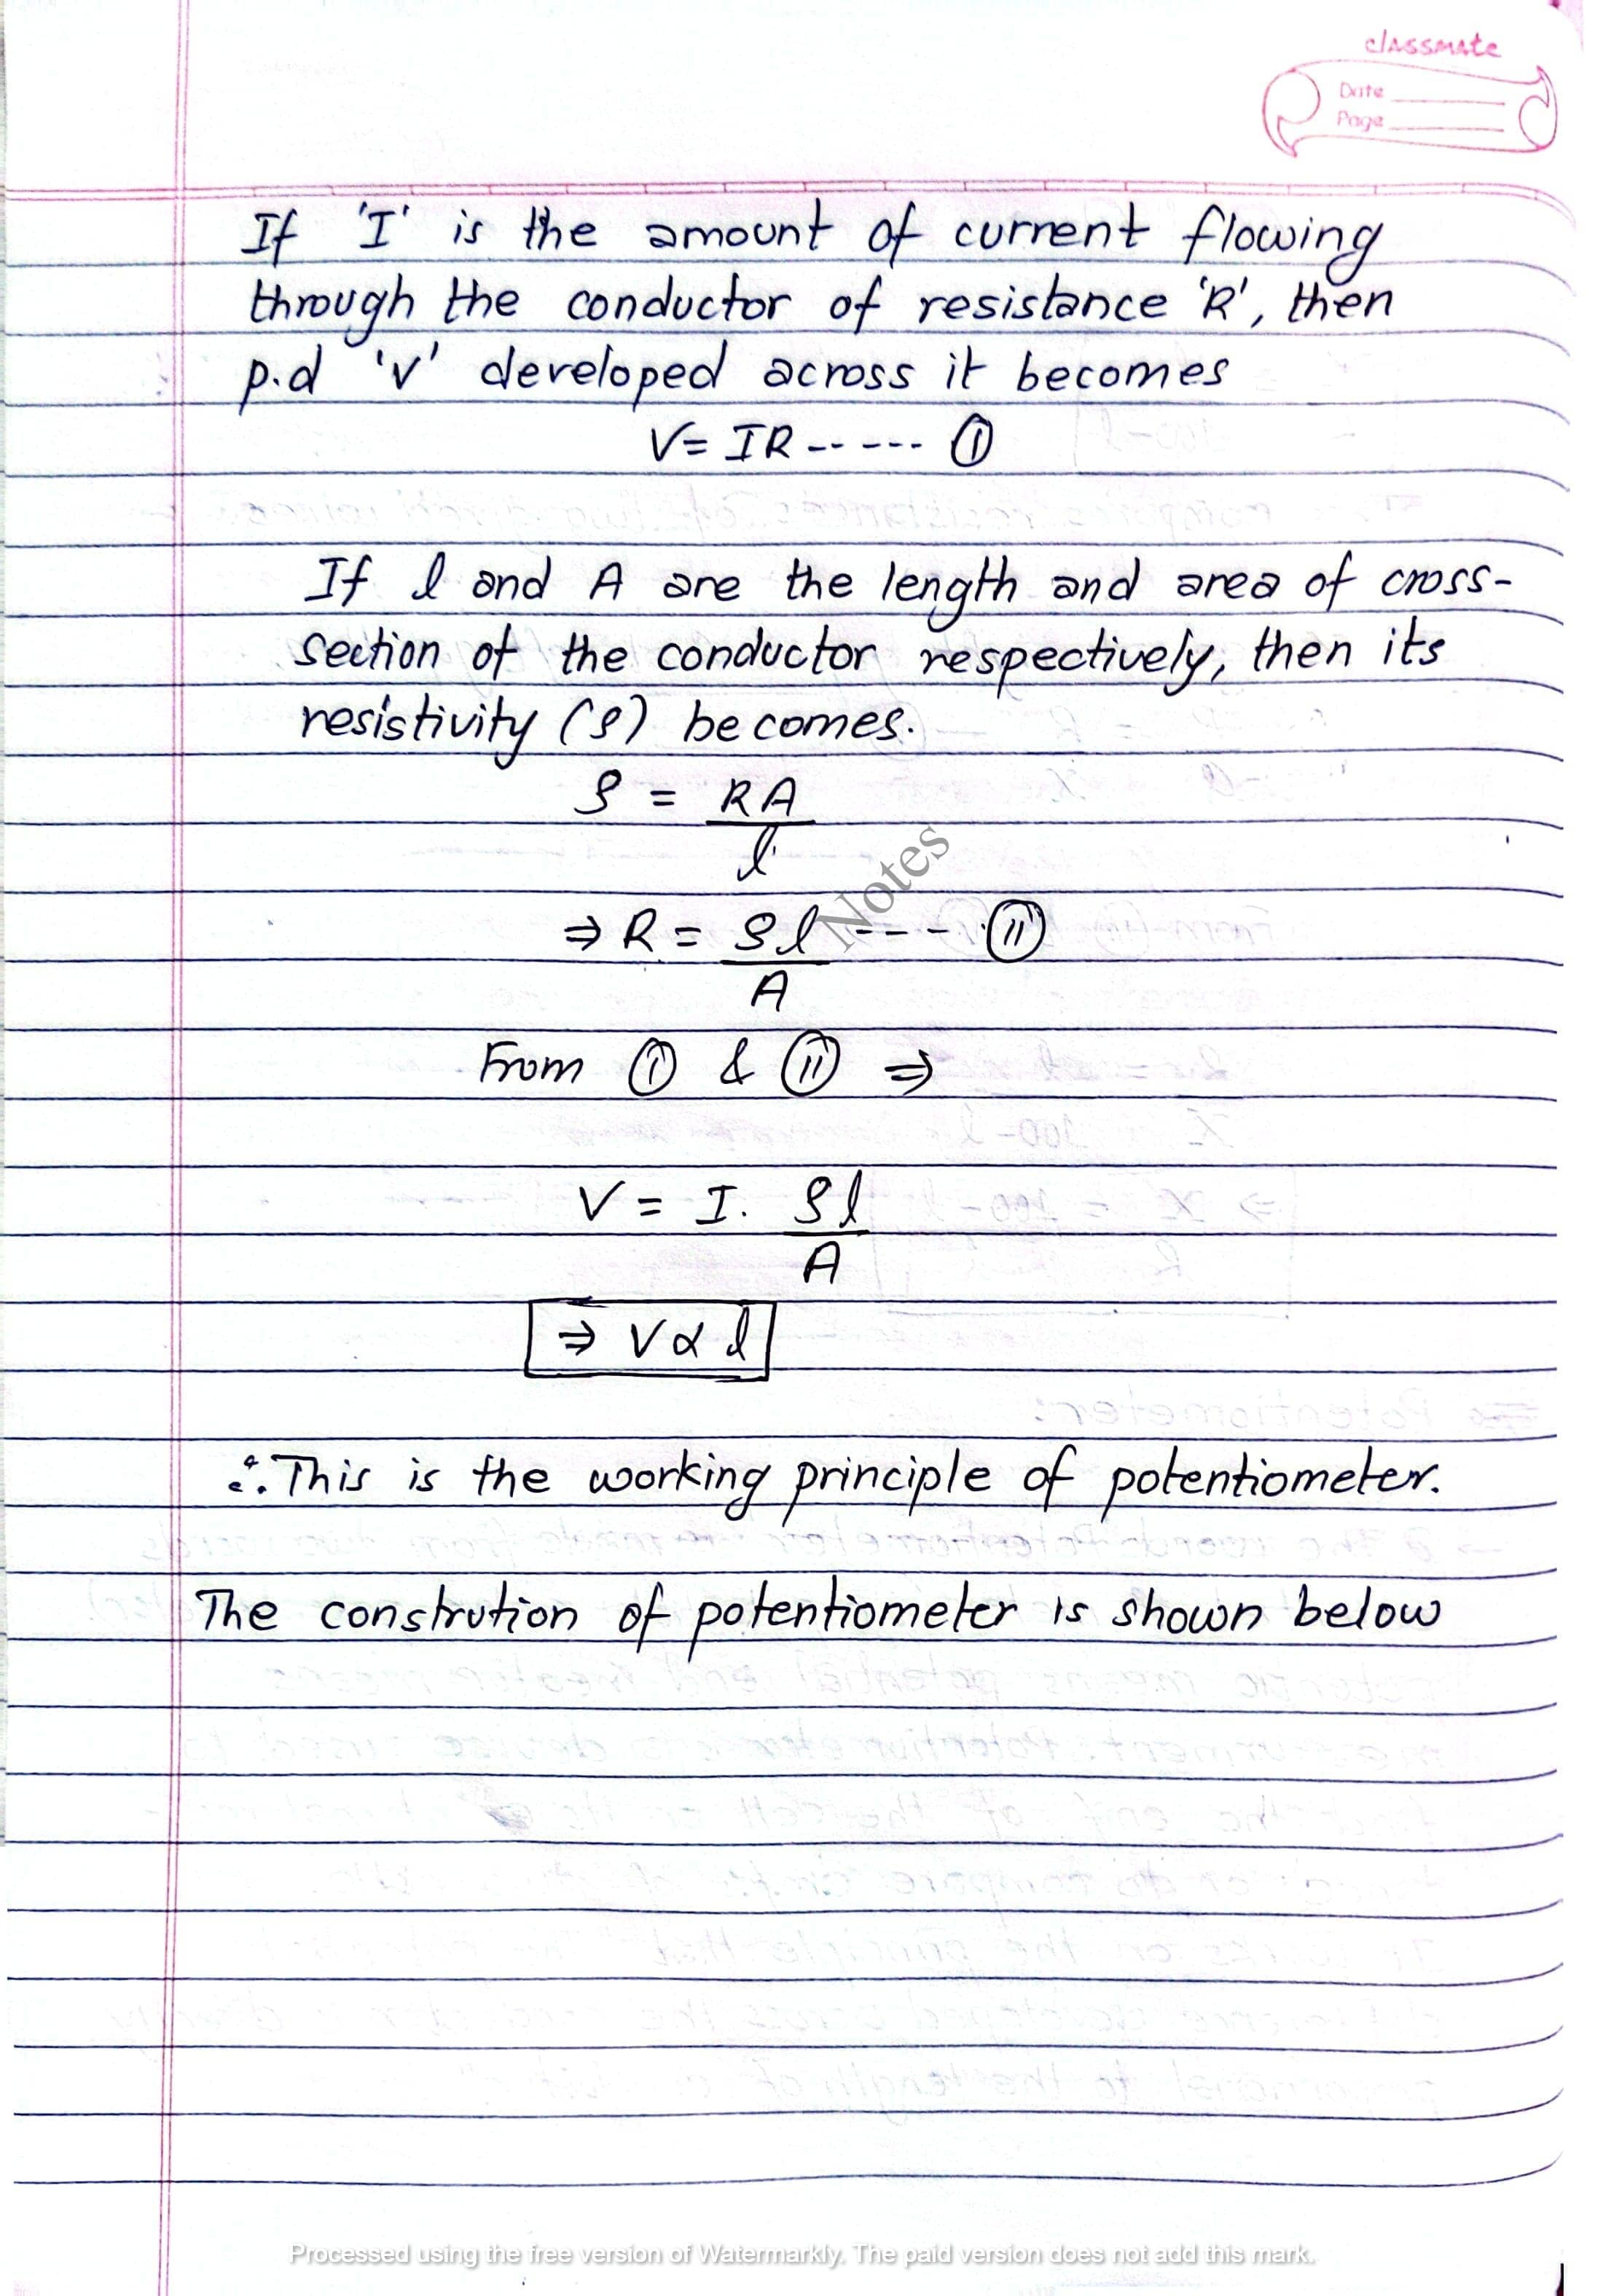 classmate
Date
Page
If 'I' is the amount of current flowing
through the conductor of resistance 'R', then
p.d 'V' developed across it becomes
V = IR ------ (I)
If l and A are the length and area of cross-
section of the conductor respectively, then its
resistivity (ρ) becomes.
ρ = RA
l
⇒ R = ρl ---- (II)
A
Notes
From (I) & (II) ⇒
V = I. ρl
A
⇒ V ∝ l
∴ This is the working principle of potentiometer.
The constrution of potentiometer is shown below
Processed using the free version of Watermarkly. The paid version does not add this mark.